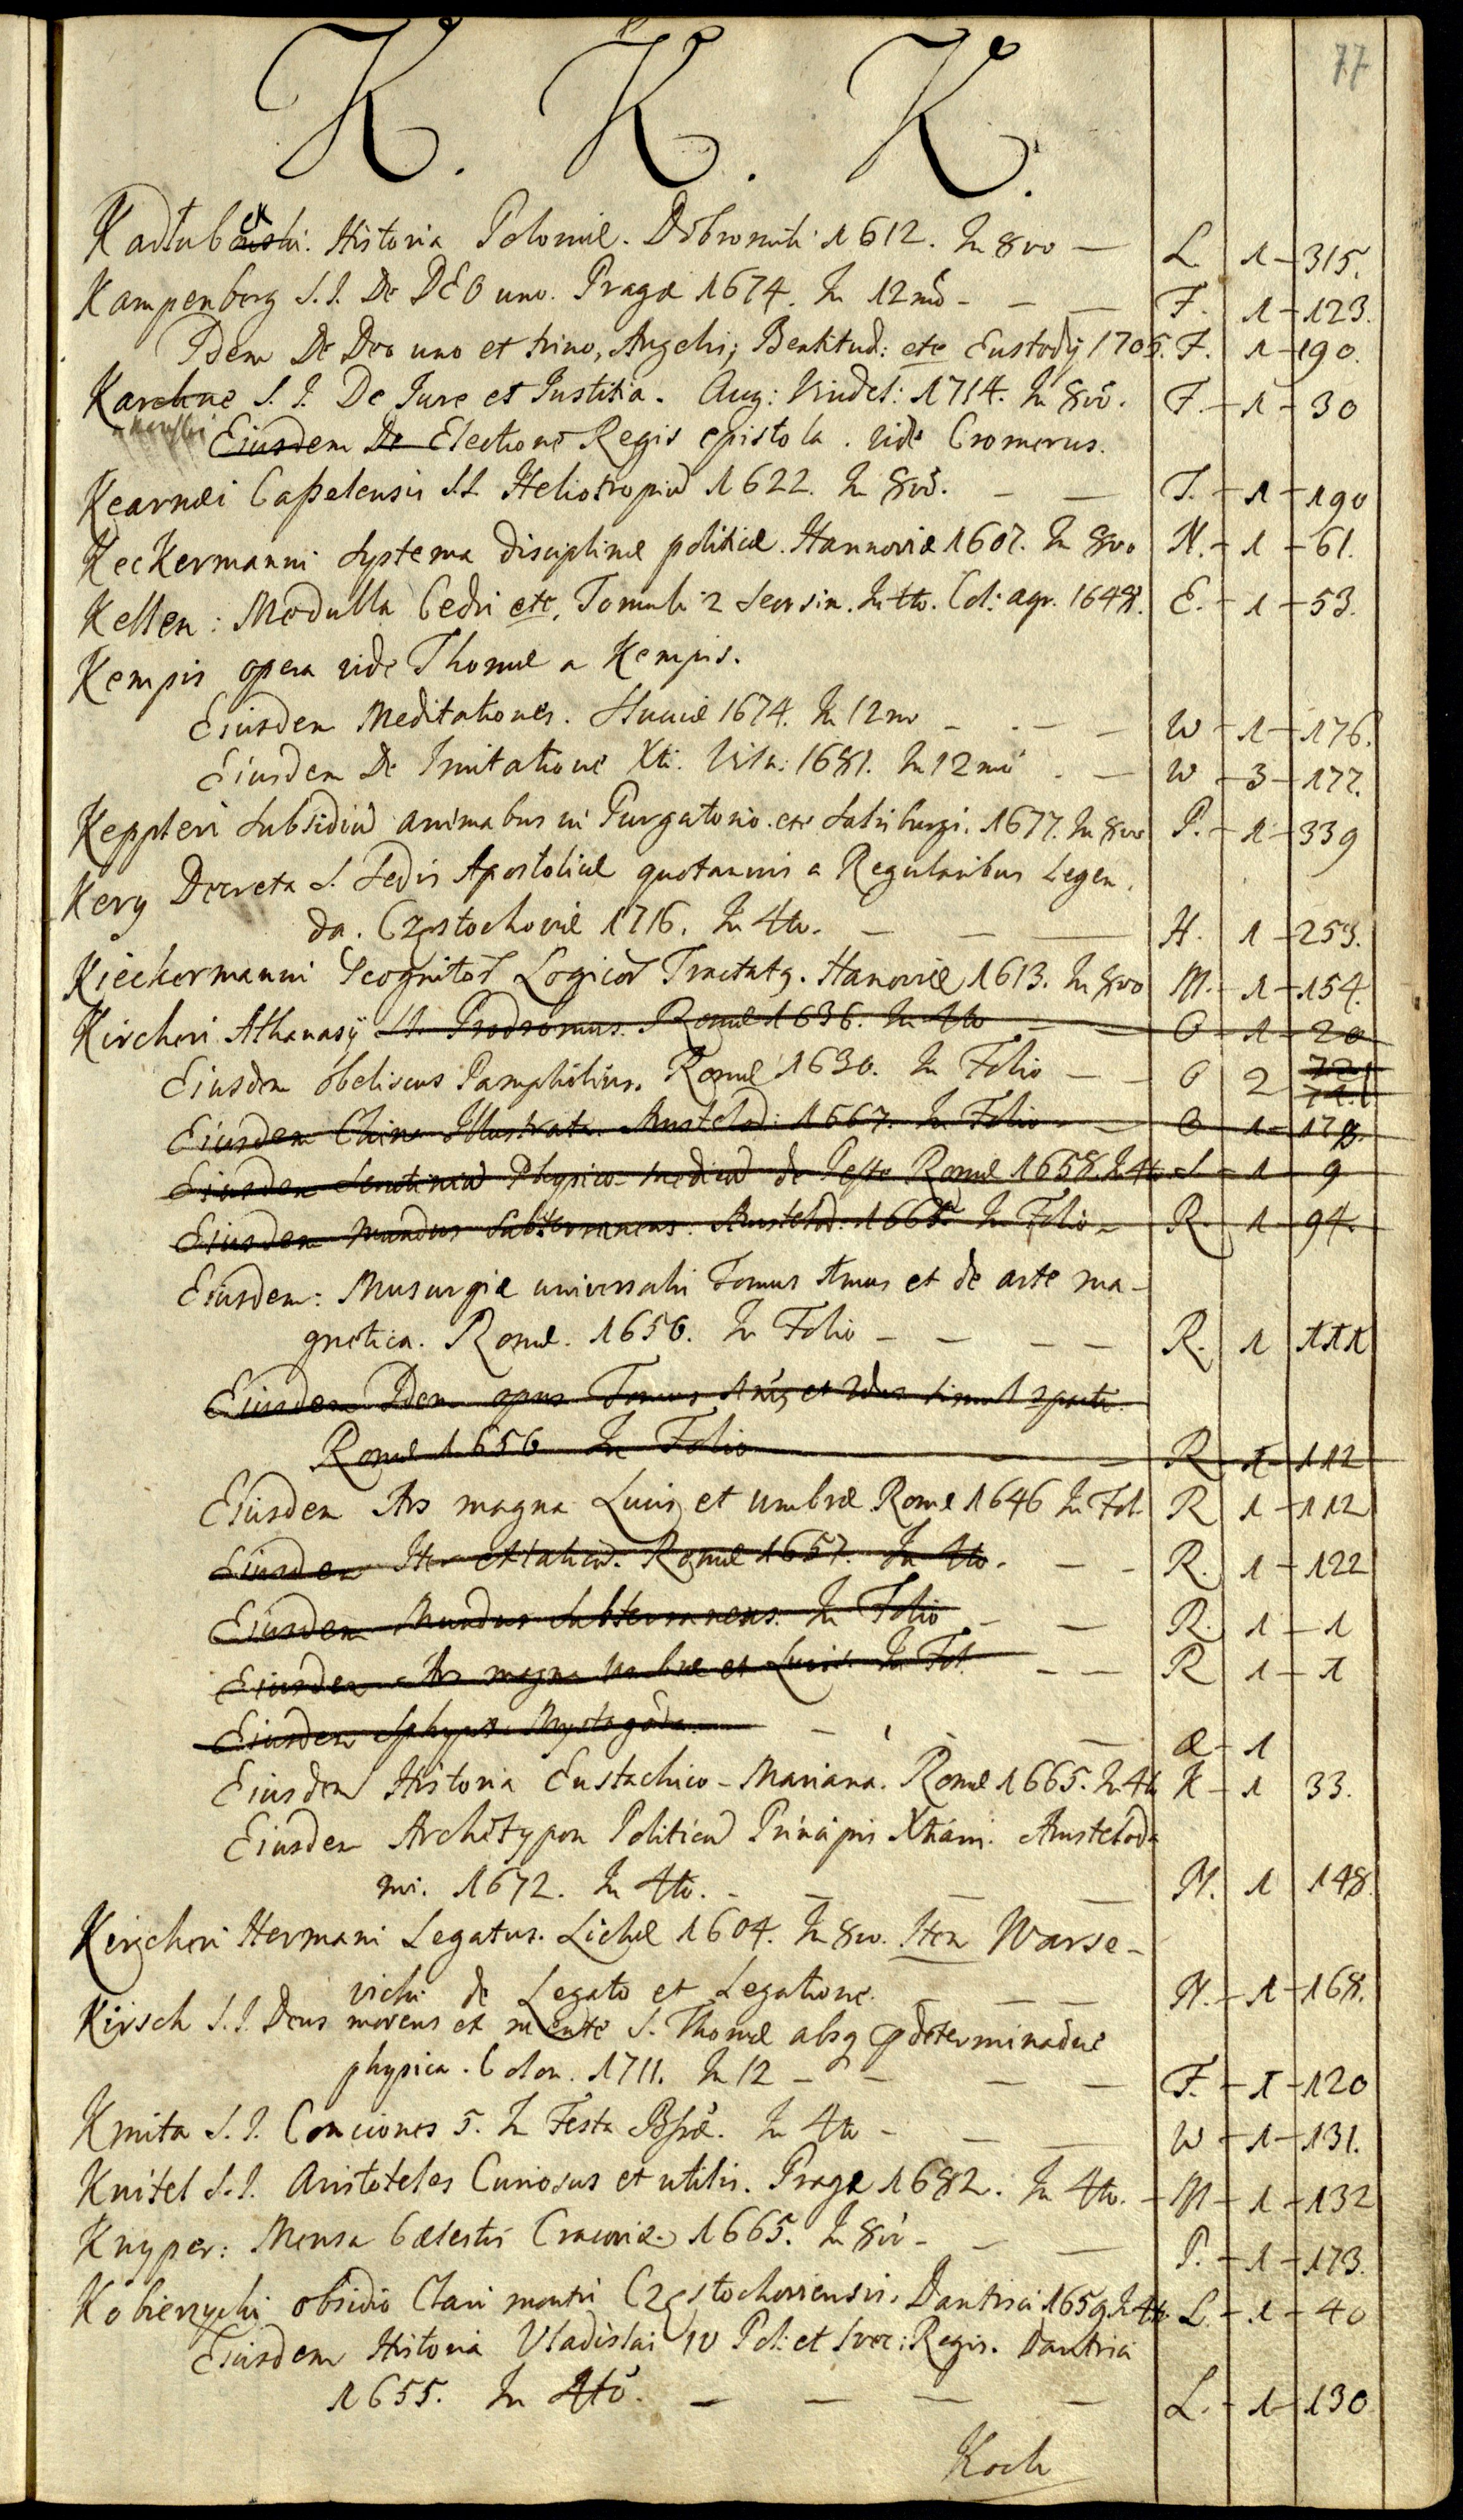 77
K. K. K.
Kadłubek. Historia Poloniæ. Dobromili 1612. In 8vo — L 1 – 315.
Kampenberg S.J. De DEO uno. Pragæ 1674. In 12mo – — — F. 1 – 123.
Idem De Deo uno et trino, Angelis, Beatitud: etc Eustadÿ 1705. F. 1 – 190.
S. J. De Jure et Justitia. Aug: Vindel: 1714. In 8vo. F. – 1 – 30
Ejusdem De Electione Regis epistola. vide Cromerus.
Kearnæi Caßelensis S.J. Heliotropiũ 1622. In 8vo. – — T. – 1 – 190
Keckermanni Systema disciplinæ politicæ. Hannoviæ 1607. In 8vo N. – 1 – 61.
Kellen: Medulla Cedri etc. Tomuli 2 seorsim. In 4to. Col: agr. 1648. E. – 1 – 53.
Kempis opera vide Thomæ a Kempis.
Ejusdem Meditationes. 1674. In 12mo – . — — W – 1 – 176.
Ejusdem De Imitatione Xti. Viln: 1681. In 12mo . — W – 3 – 177.
Keppleri Subsidiũ animabus in Purgatorio etc Salisburgi. 1677. In 8vo P. – 1 – 339
Kery Decreta S. Sedis Apostolicæ quotannis a Regularibus Legen.
da. Częstochoviæ 1716. In 4to. — — — H. 1 – 253.
Kieckermanni Logicoȓ Tractatg. Hanoviæ 1613. In 8vo M. – 1 – 154.
Kircheri Athanasÿ S.J. Prodromus. Romæ 1636. In 4to – — O – 1 – 20
Ejusdem obeliscus Pamphilius. Romæ 1630. In Folio — – O 2
Ejusdem China Illustrata. Amstelod: 1667. In Folio – — O 1 – 178.
Ejusdem Scrutiniũ Physico-Medicũ de Peste Romæ 1658. In 4to S – 1 – 9
Ejusdem Mundus Subterraneus. Amstelod: 1665. In Folio – R. 1 – 94.
Ejusdem: Musurgiæ universalis Tomus 1mus et de arte ma-
gnetica. Romæ. 1650. In Folio – — — — R. 1 111
Ejusdem Idem opus Tomus et 2dus simul
Romæ 1650 In Folio — — R – 1 – 112
Ejusdem Ars magna Lucis et umbræ Romæ 1646 In Fol. R 1 – 112
Ejusdem Iter extaticũ. Romæ 1657. In 4to. — – R. 1 – 122
Ejusdem Mundus Subterraneus. In Folio – — R. 1 – 1
Ejusdem Ars magna Umbræ et Lucis. In Fol. — — R 1 – 1
Ejusdem Sphynx Mystagoda. – – — Æ – 1
Ejusdem Historia Eustachico-Mariana. Romæ 1665. In 4to K – 1 33.
Ejusdem Architypon Politicũ Principis Xtiani. Amsteloda
mi. 1672. In 4to. – — — — N. 1 148.
Kircheri Hermani Legatus. Lichæ 1604. In 8vo. Item Warse-
vichi de Legato et Legatione. — — — N. – 1 – 168.
Kirsch S.J. Deus movens ex mente S. Thomæ absq determinaõne
physica. Colon. 1711. In 12 – — — — F. – 1 – 120
Kmita S.J. Conciones 5. In Festa In 4to – — — W – 1 – 131.
Knitel S.J. Aristoteles Curiosus et utilis. Pragæ 1682. In 4to. – M – 1 – 132
Knyper: Mensa Cælestis Cracoviæ 1665. In 8vo – – — P. – 1 – 173.
Kobierzycki obsidio Clari montis Częstochoviensis. Dantisci 1659. In 4to. L. – 1 – 40
Ejusdem Historia Vladislai IV Pol: et Svec: Regis. Dantisci
1655. In 4to. — — — — L. – 1 – 130
Koch